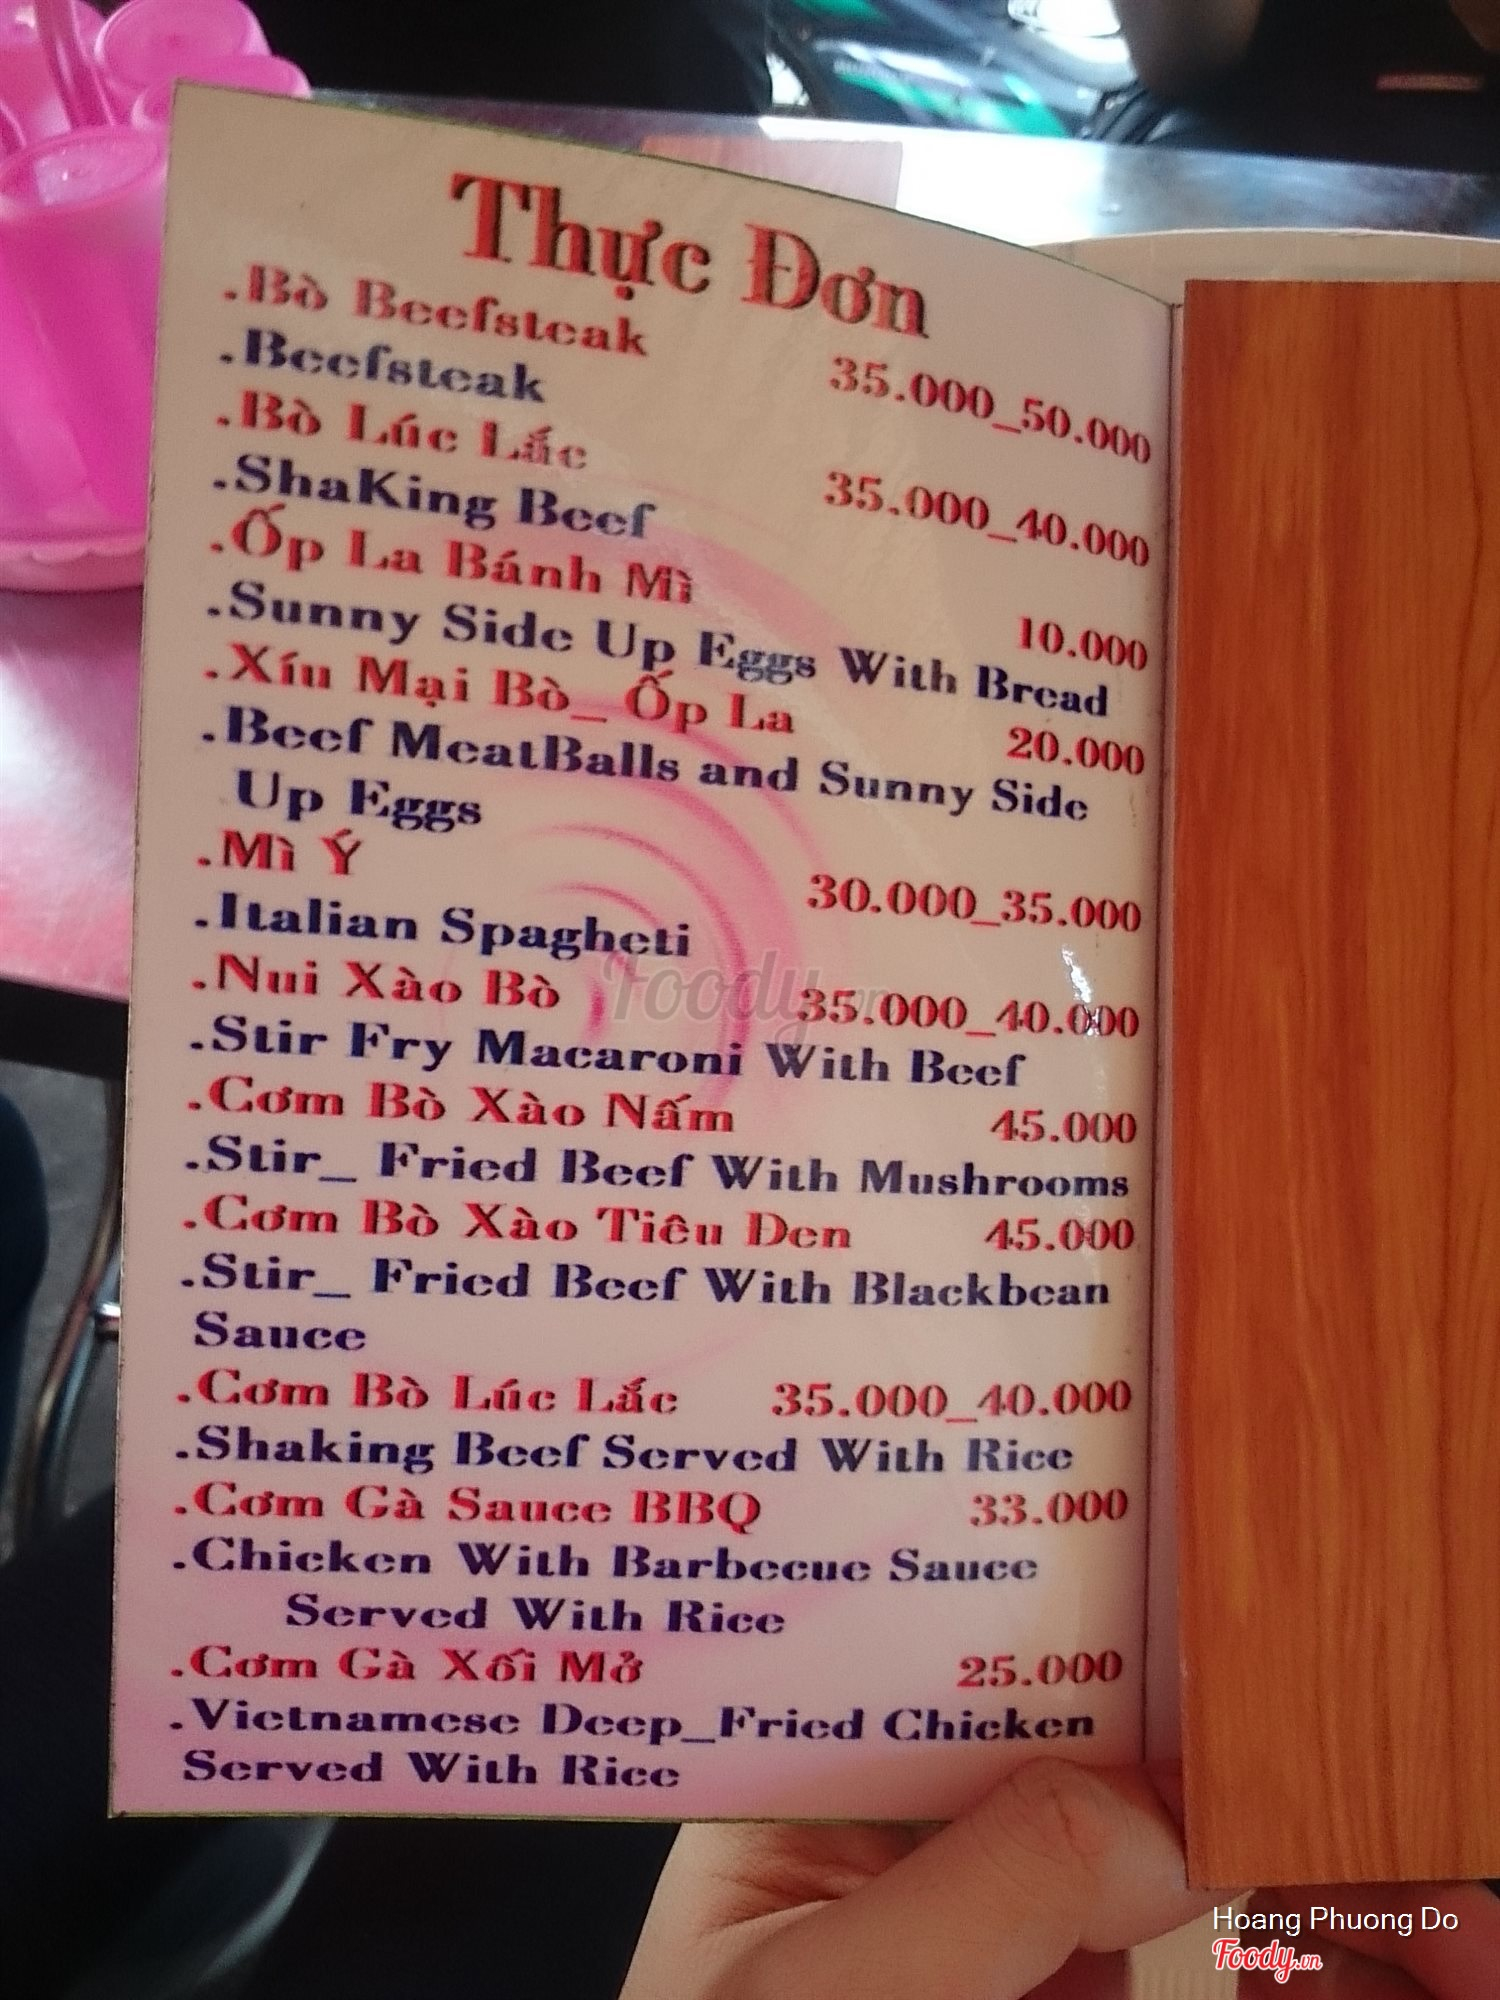 Thực Đơn
.Bò Beefsteak 35.000_50.000
.Beefsteak
.Bò Lúc Lắc 35.000_40.000
.ShaKing Beef
.Ốp La Bánh Mì 10.000
.Sunny Side Up Eggs With Bread
.Xíu Mại Bò_ Ốp La 20.000
.Beef MeatBalls and Sunny Side
Up Eggs
.Mì Ý 30.000_35.000
.Italian Spagheti
.Nui Xào Bò 35.000_40.000
.Stir Fry Macaroni With Beef
.Cơm Bò Xào Nấm 45.000
.Stir_ Fried Beef With Mushrooms
.Cơm Bò Xào Tiêu Đen 45.000
.Stir_ Fried Beef With Blackbean
Sauce
.Cơm Bò Lúc Lắc 35.000_40.000
.Shaking Beef Served With Rice
.Cơm Gà Sauce BBQ 33.000
.Chicken With Barbecue Sauce
Served With Rice
.Cơm Gà Xối Mở 25.000
.Vietnamese Deep_Fried Chicken
Served With Rice
Foody.vn
Hoang Phuong Do
Foody.vn